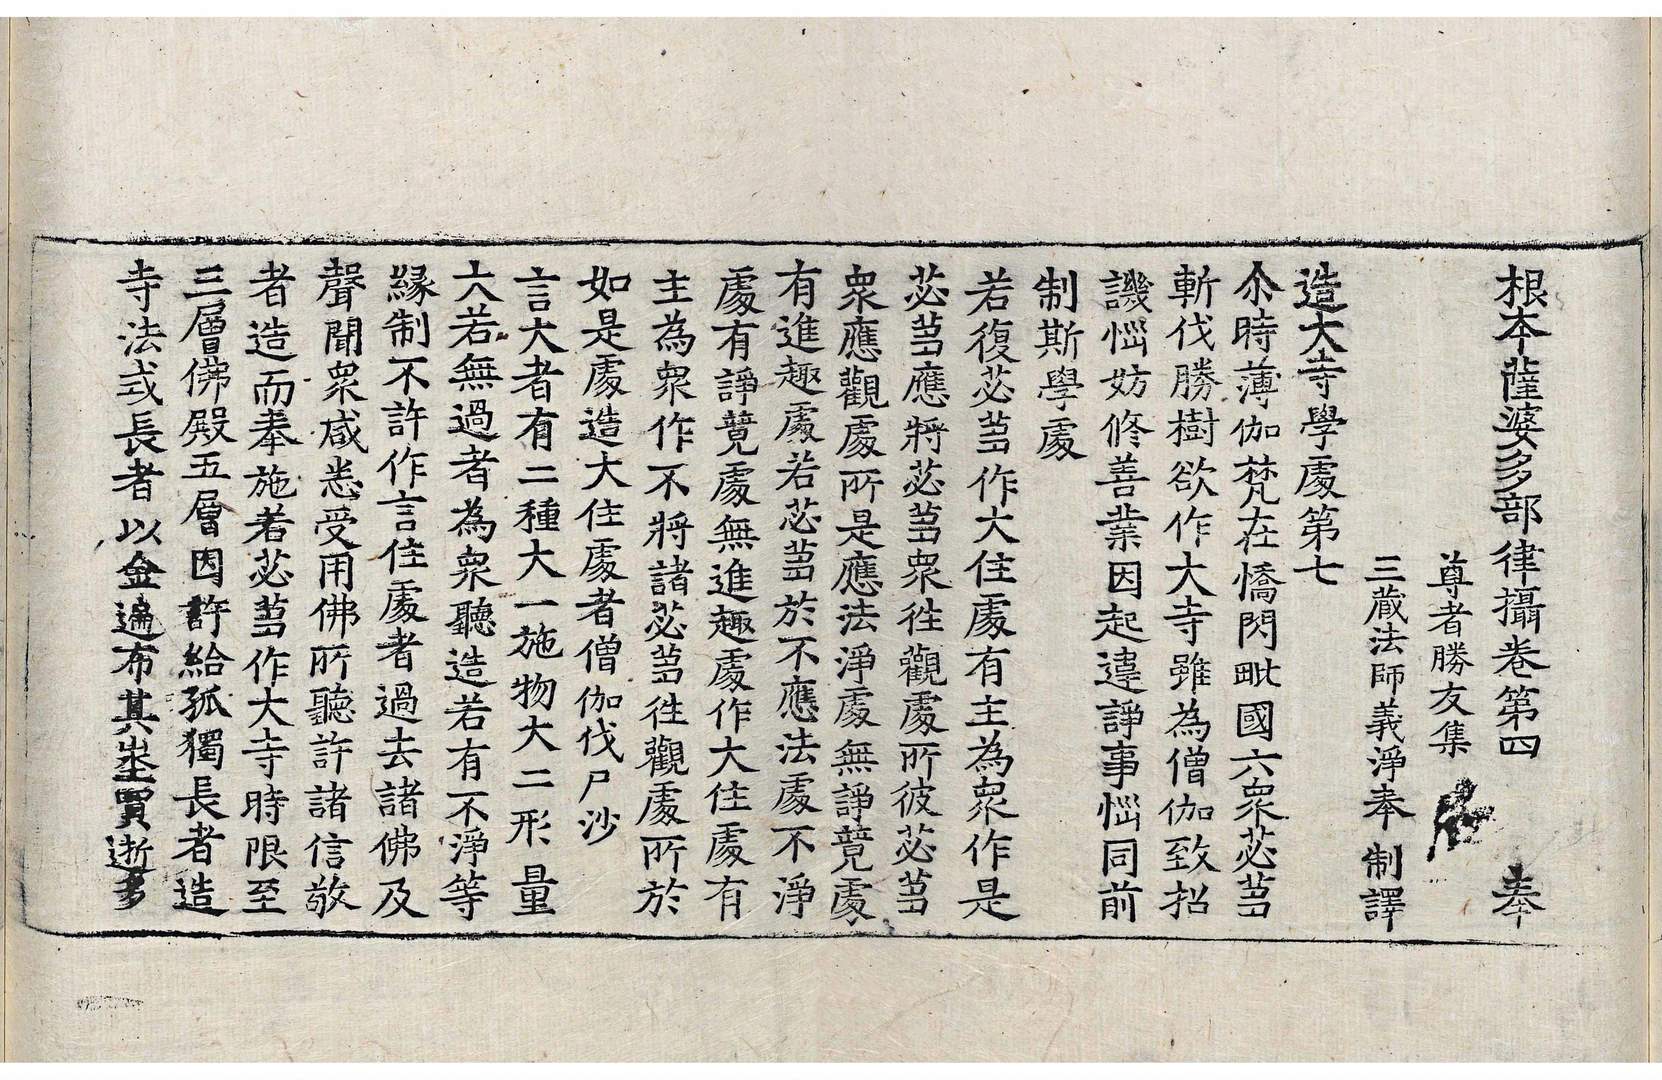 根本薩婆多部律攝卷第四　奉
尊者勝友集
三藏法師義淨奉　制譯
造大寺學處第七
尒時薄伽梵在憍閃毗國六衆苾芻
斬伐勝樹欲作大寺雖為僧伽致招
譏惱妨修善業因起違諍事惱同前
制斯學處
若復苾芻作大住處有主為衆作是
苾芻應將苾芻衆徃觀處所彼苾芻
衆應觀處所是應法淨處無諍競處
有進趣處若苾芻於不應法處不淨
處有諍競處無進趣處作大住處有
主為衆作不將諸苾芻徃觀處所於
如是處造大住處者僧伽伐尸沙
言大者有二種大一施物大二形量
大若無過者為衆聽造若有不淨等
緣制不許作言住處者過去諸佛及
聲聞衆咸悉受用佛所聽許諸信敬
者造而奉施若苾芻作大寺時限至
三層佛殿五層因許給孤獨長者造
寺法式長者以金遍布其地買逝多